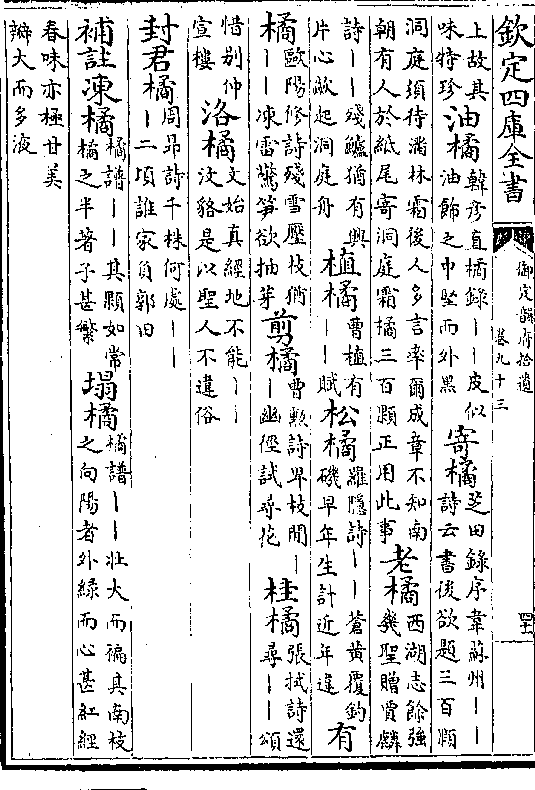 欽定四庫全書
御定韻府拾遺
卷九十三
上故其
味特珍
油橘
韓彦直橘錄丨丨皮似
油飾之中堅而外黑
寄橘
芝田錄序韋蘇州丨丨
詩云書後欲題三百顆
洞庭須待滿林霜後人多言率爾成章不知南
朝有人於紙尾寄洞庭霜橘三百顆正用此事
老橘
西湖志餘強
幾聖贈賈麟
詩丨丨殘鱸猶有興
片心歘起洞庭舟
植橘
曹植有
丨丨賦
松橘
羅隱詩丨丨蒼黄覆釣
磯早年生計近年違
有
橘
歐陽修詩殘雪壓枝猶
丨丨凍雷驚笋欲抽芽
剪橘
曹勲詩畀枝閒丨
丨幽徑試尋花
桂橘
張拭詩還
尋丨丨頌
惜别仲
宣樓
洛橘
文始真經地不能丨丨
汶貉是以聖人不違俗
封君橘
周昂詩千株何處丨丨
丨二項誰家負郭田
補註凍橘
橘譜丨丨其顆如常
橘之半著子甚繁
塌橘
橘譜丨丨壯大而褊其南枝
之向陽者外緑而心甚紅經
春味亦極甘美
瓣大而多液